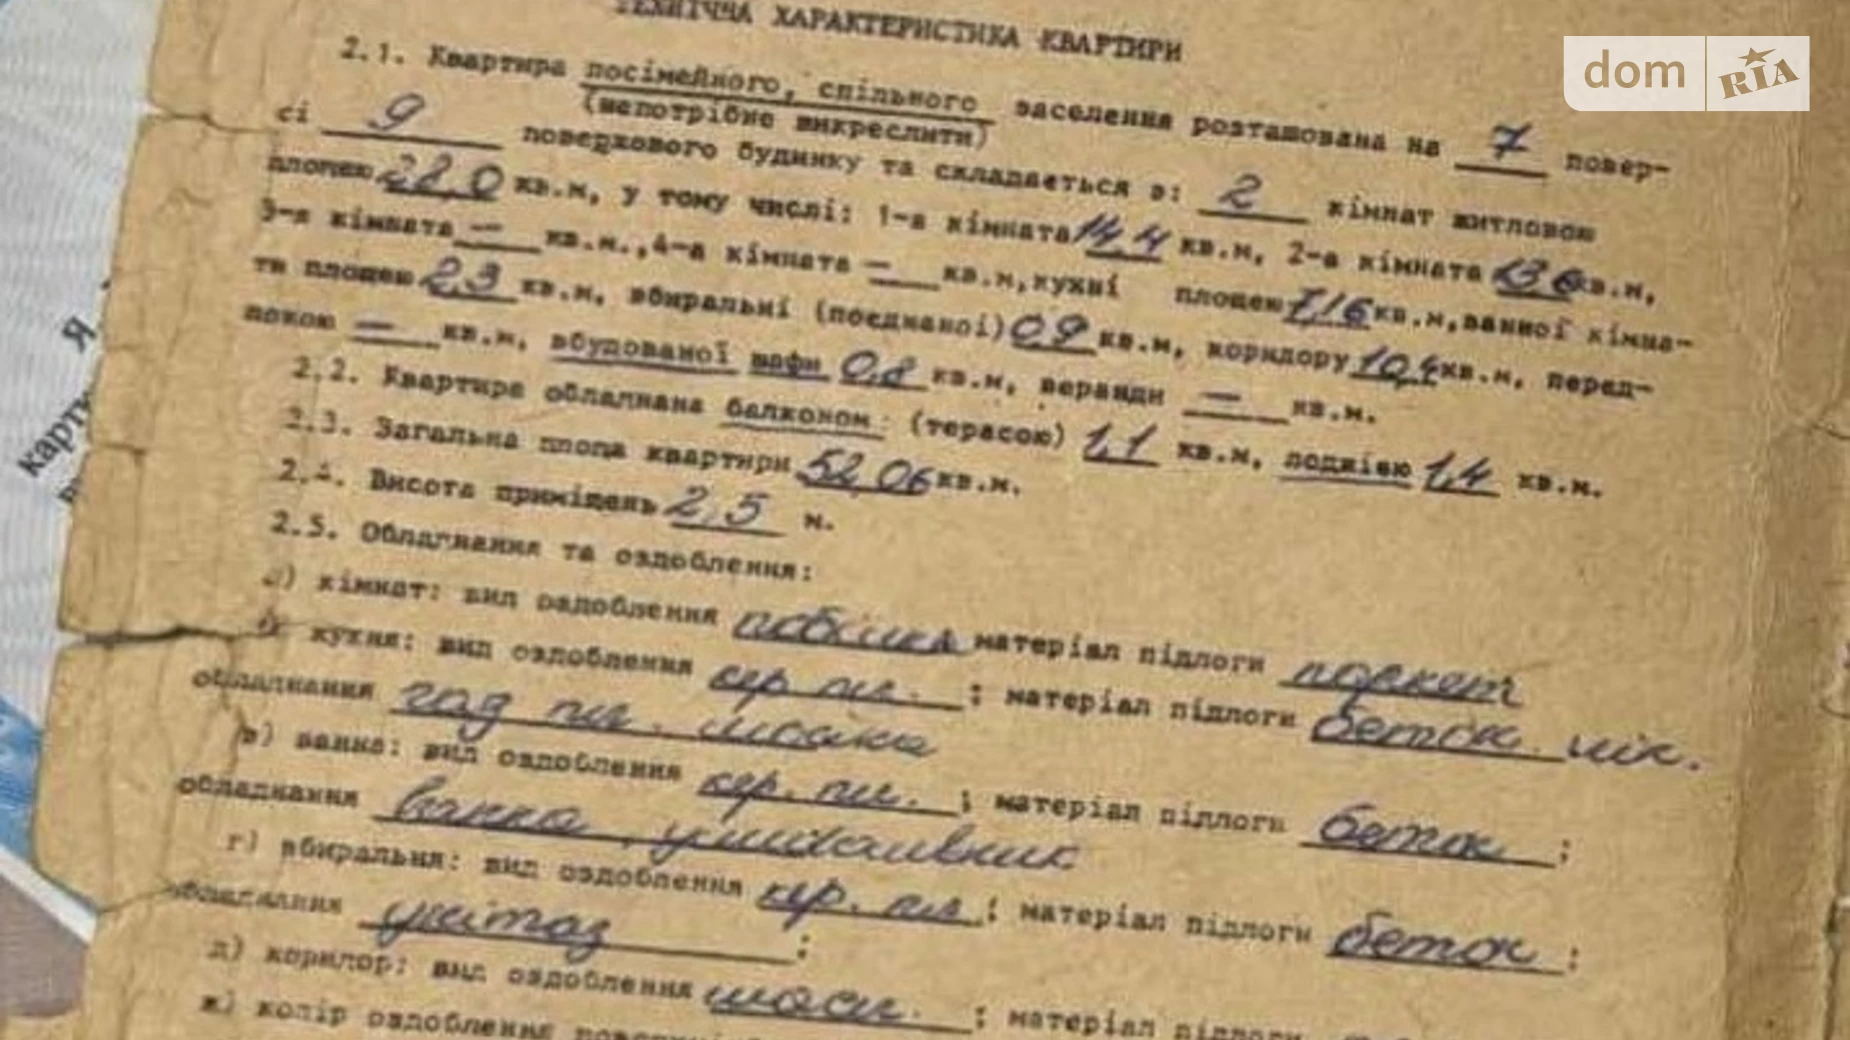 ТЕХНІЧНА ХАРАКТЕРИСТИКА КВАРТИРИ
dom RIA
2.1. Квартира посімейного, спільного заселення розташована на 7 повер-
(непотрібне викреслити)
сі 9 поверхового будинку та складається з: 2 кімнат житловою
площею 28,0 кв.м, у тому числі: 1-а кімната 14,4 кв.м, 2-а кімната 13,6 кв.м,
3-я кімната — кв.м.,4-а кімната — кв.м,кухні площею 7,16 кв.м,ванної кімна-
ти площею 2,3 кв.м, вбиральні (поєднаної) 0,9 кв.м, коридору 10,4 кв.м, перед-
покою — кв.м, вбудованої шафи 0,8 кв.м, веранди — кв.м.
2.2. Квартира обладнана балконом (терасою) 1,1 кв.м, лоджією 1,4 кв.м.
2.3. Загальна площа квартири 52,06 кв.м.
2.4. Висота приміщень 2,5 м.
2.5. Обладнання та оздоблення:
а) кімнат: вид оздоблення побілка матеріал підлоги паркет
б) кухня: вид оздоблення кер. пл. ; матеріал підлоги бетон.
обладнання газ пл. мойка
в) ванна: вид оздоблення кер. пл. ; матеріал підлоги бетон ;
обладнання ванна, умивальник
г) вбиральня: вид оздоблення кер. пл. ; матеріал підлоги бетон ;
обладнання унітаз ;
д) коридор: вид оздоблення ; матеріал підлоги
ж) колір оздоблення
Я
карт